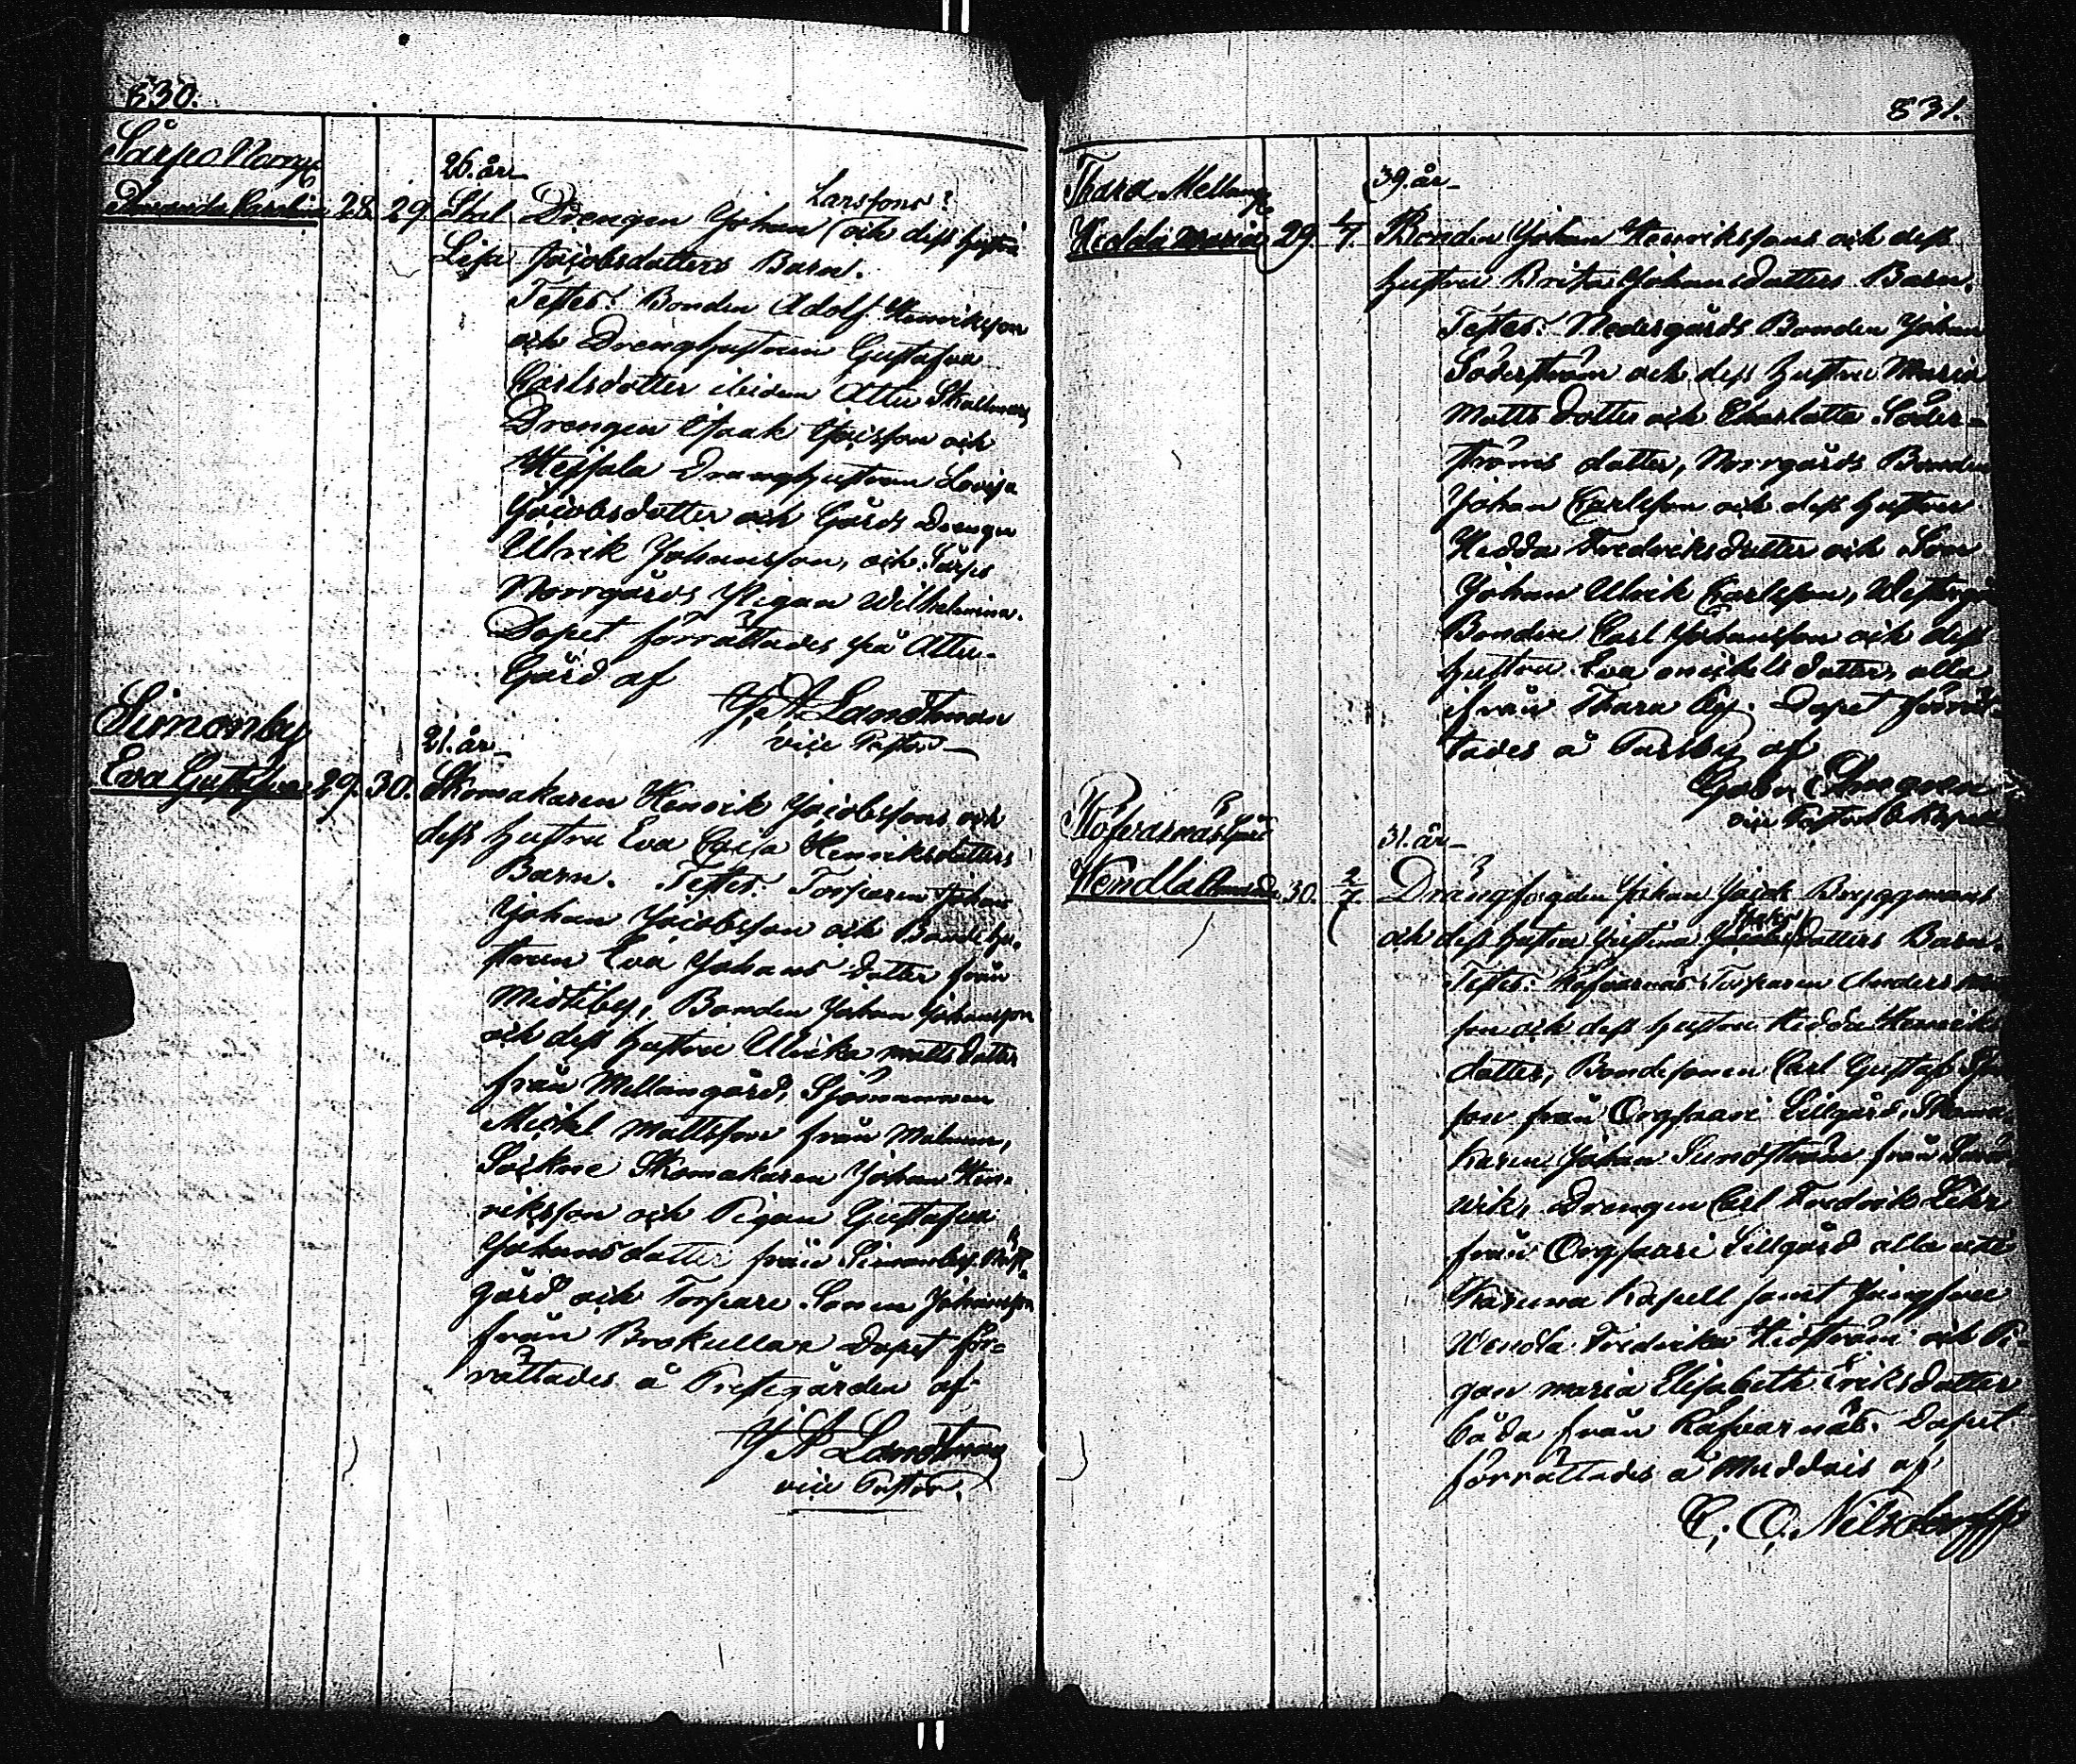 530.
Särpo Norrg.
26. år
Amanda Carolina 28. 29. Stal Drengen Johan Larssons och dess hustru
Lisa Jacobsdotters Barn.
Testes: Bonden Adolf Henriksson
och Drenghustrun Gustafva
Carlsdotter ibidem Attu
Drengen Isaak Isaksson och
Hessala Drenghustrun Lovisa
Jacobsdotter och Gårds Drengen
Ulrik Johansson, och Särpo
Norrgårds Pigan Wilhelmina.
Dopet förrättades på Attu
Gård af
J. A. Landtman
vice Pastor
Simonby
21. år
Eva Gustafva 29. 30. Skomakaren Henrik Jacobssons och
dess hustru Eva Caisa Henriksdotters
Barn. Testes: Torparen Johan
Johan Jacobsson och Bondehu-
strun Eva Johans dotter från
Midtiby, Bonden Johan Johansson
och dess hustru Ulrika Matts dotter
från Mellangård, Sjömannen
Mickel Mattsson från Malmen,
Sockne Skomakaren Johan Hen-
riksson och Pigan Gustafva
Johansdotter från Simonby
gård och Torpare Sonen Johansson
från Brokulla. Dopet för-
rättades å Prestgården af
J. A. Landtman
vice Pastor.
531.
Thara Mellang.
39. år
Hedda Maria 29. 4/7. Bonden Johan Henrikssons och dess
hustru Brita Johansdotters Barn.
Testes: Nedergårds Bonden Johan
Söderström och dess hustru Maria
Matts dotter och Charlotta Söder-
ströms dotter, Norrgårds Bonden
Johan Carlsson och dess hustru
Hedda Fredriksdotter och Son
Johan Ulrik Carlsson,
Bonden Carl Johansson och dess
hustru Eva Mickelsdotter, alla
ifrån Thara By. Dopet förrät-
tades å Parsby af
vice Pastor
Röfvarnäs
31. år
Wendla Amanda 30. 2/7. Drängfogden Johan Jacob Bryggmans
och dess hustru Justina Isaksdotters Barn.
Testes: Röfvarnäs Torparen Anders
son och dess hustru Hedda Henriks
dotter, Bondesonen Carl Gustaf
son från Orgsaari Lillgård, Skoma
karen Johan Sundström från
wik, Drengen Carl Fredrik
från Orgsaari Lillgård alla uti
Karuna Kapell samt Jungfrun
Wendla Fredrika Hidström och Pi-
gan Maria Elisabeth Eriksdotter
båda från Röfvarnäs. Dopet
förrättades å Muddais af
C. O. Nilsdorff